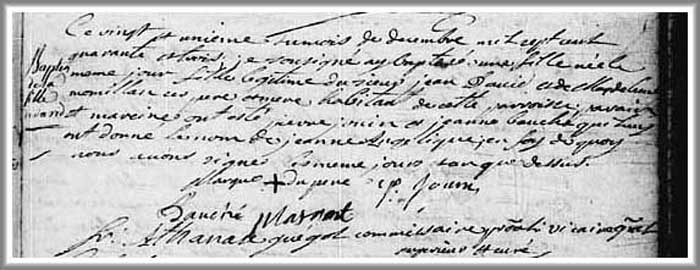 Ce vingt et unieme du mois de decembre mil sept cent
quarante et trois je soussigné ay baptisé une fille née le
meme jour fille legitime du sieur jean David et de Magdelene
monillan ces pere et mere habitan de cette parroisse; parain
et mareine ont esté pierre jouin et jeanne bauché qui luy
ont donné le nom de jeanne Angelique, en foy de quoy
nous avons signé le meme jour et an que dessus.
Baptes
de la
fille
Marque + du pere P. Jouin
Bauché
fr. Athanase guégot commissaire vicaire
superieur et curé